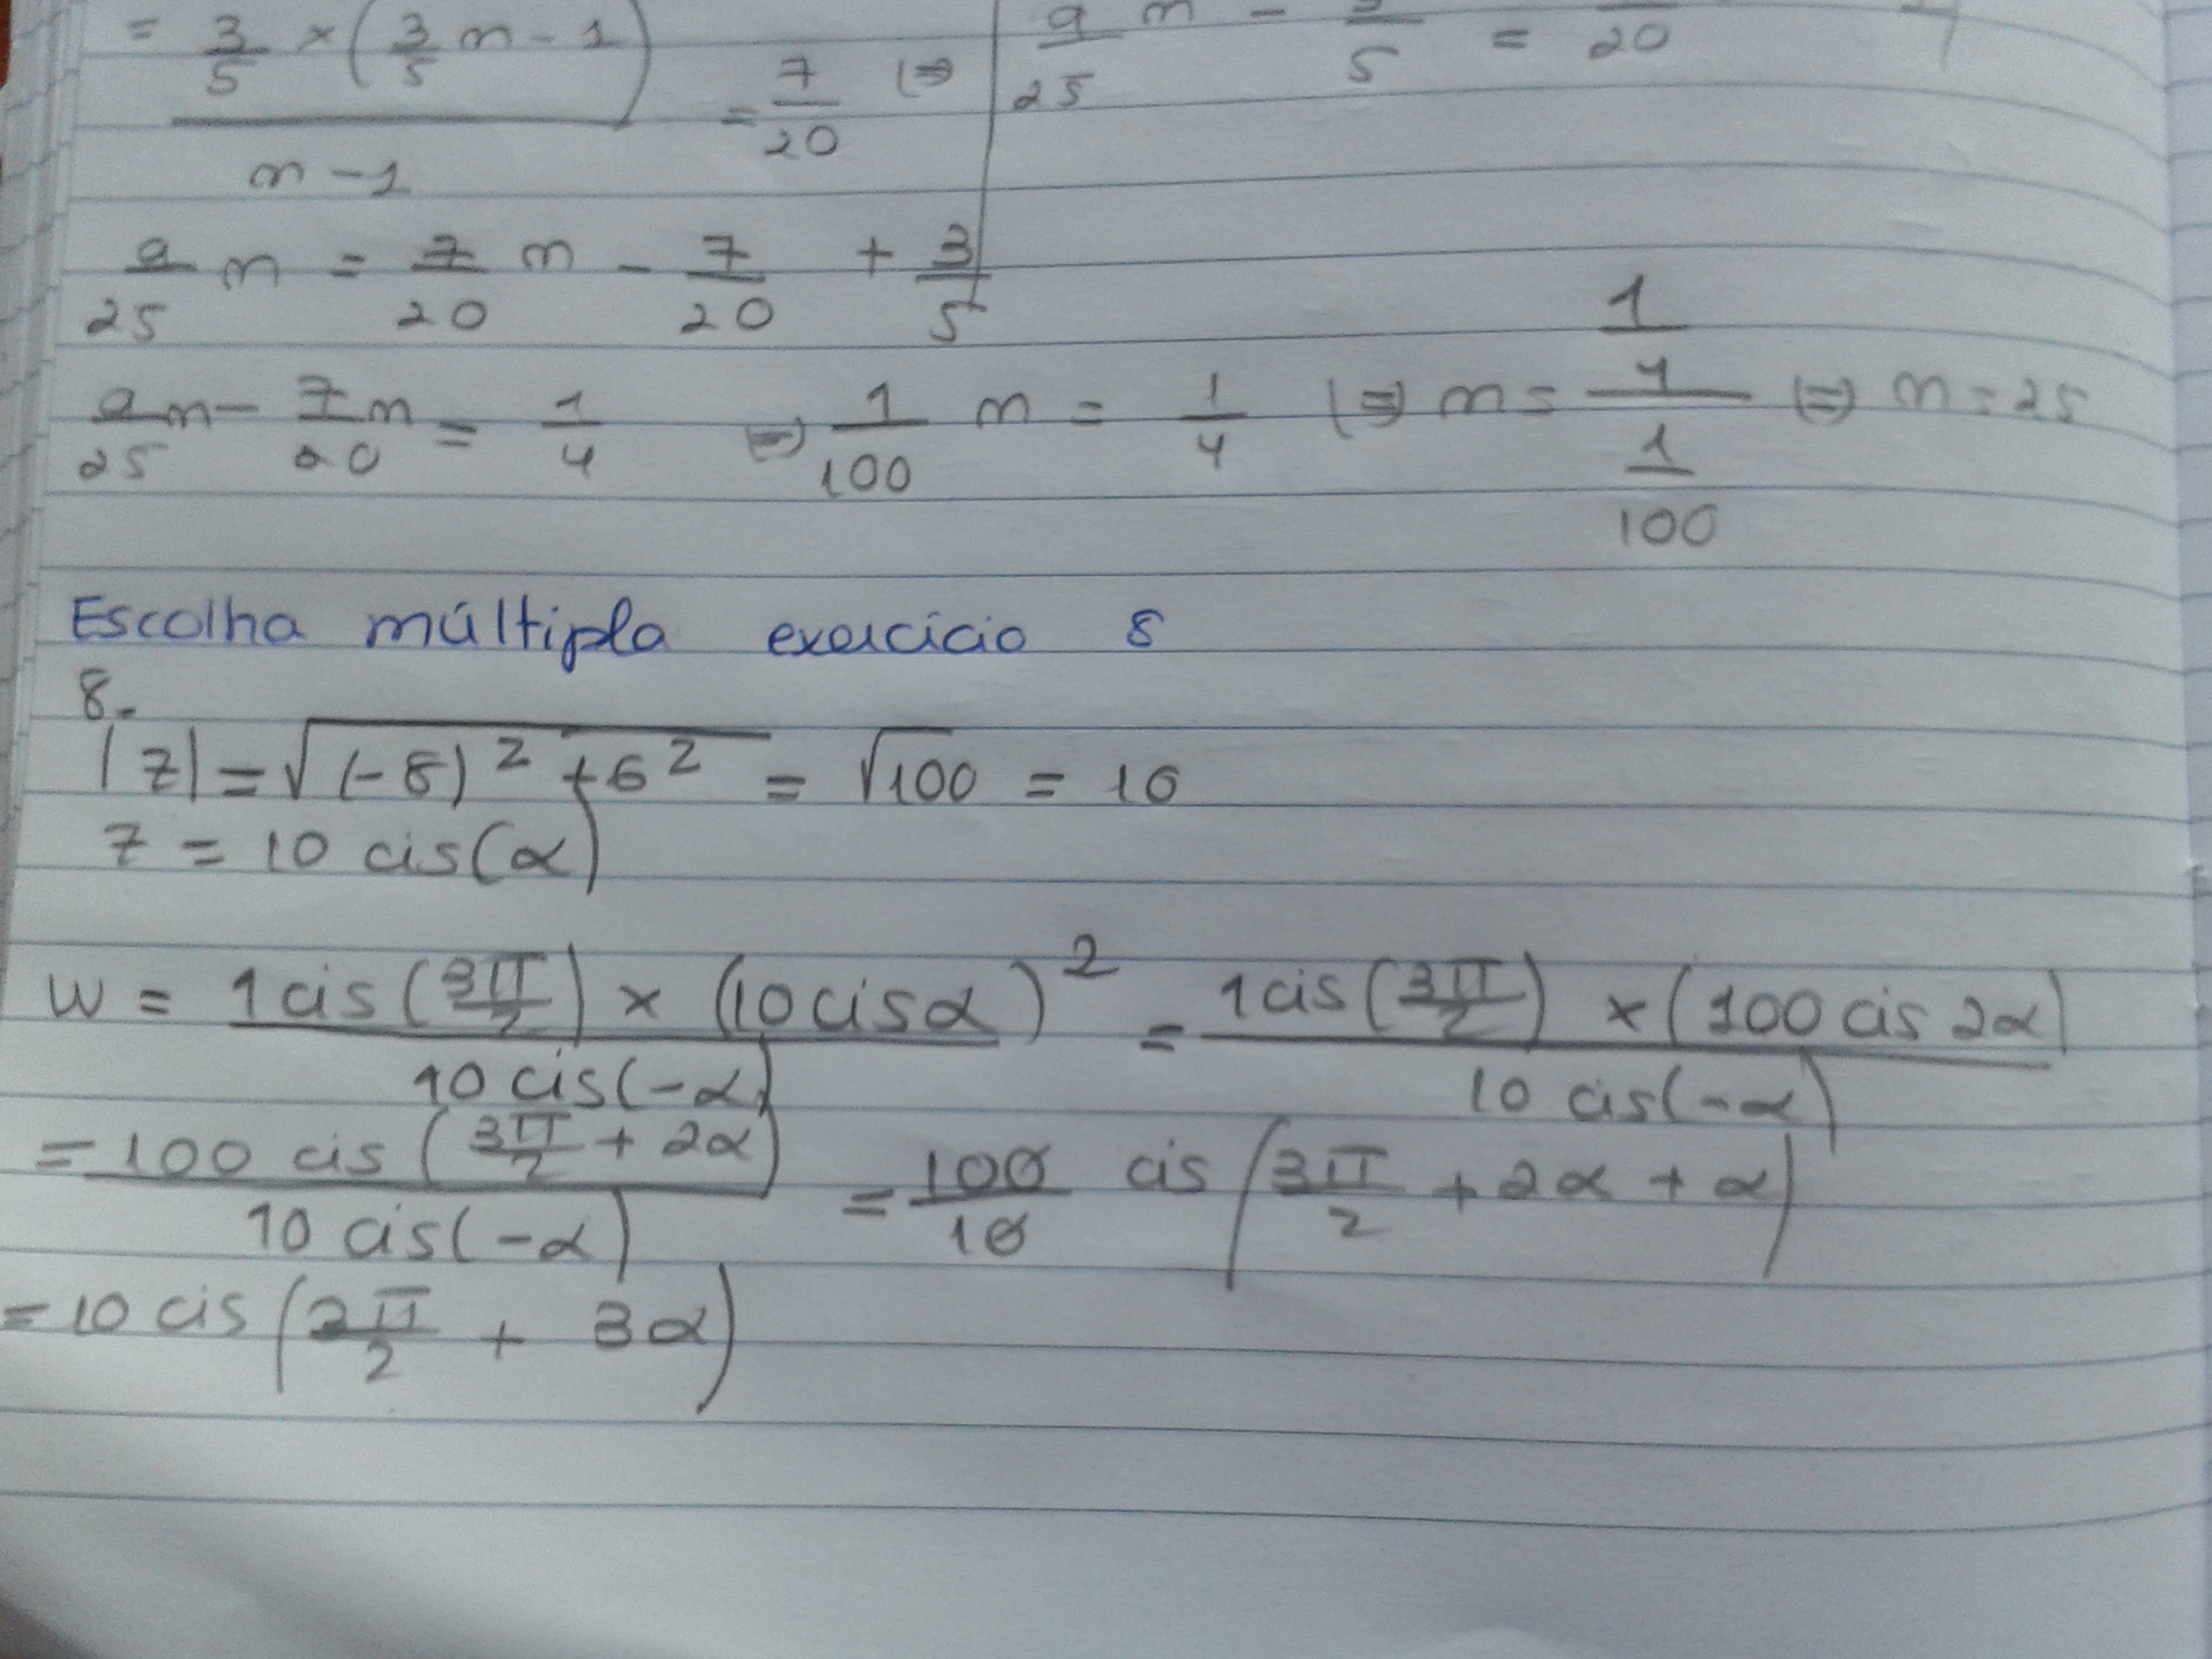 = 3/5 × (3/5 n - 1) / n - 1 = 7/20 (⇒ | 9/25 n - 5 = 20
9/25 n = 7/20 n - 7/20 + 3/5
9/25 n - 7/20 n = 1/4 ⇔ 1/100 n = 1/4 (⇒) n = 1/4 / 1/100 (⇒) n = 25
Escolha múltipla exercício 8
8.
|z| = √(-8)² + 6² = √100 = 10
z = 10 cis(α)
W = 1 cis(3π/2) × (10 cis α)² / 10 cis(-α) = 1 cis(3π/2) × (100 cis 2α) / 10 cis(-α)
= 100 cis (3π/2 + 2α) / 10 cis(-α) = 100/10 cis (3π/2 + 2α + α)
= 10 cis (3π/2 + 3α)